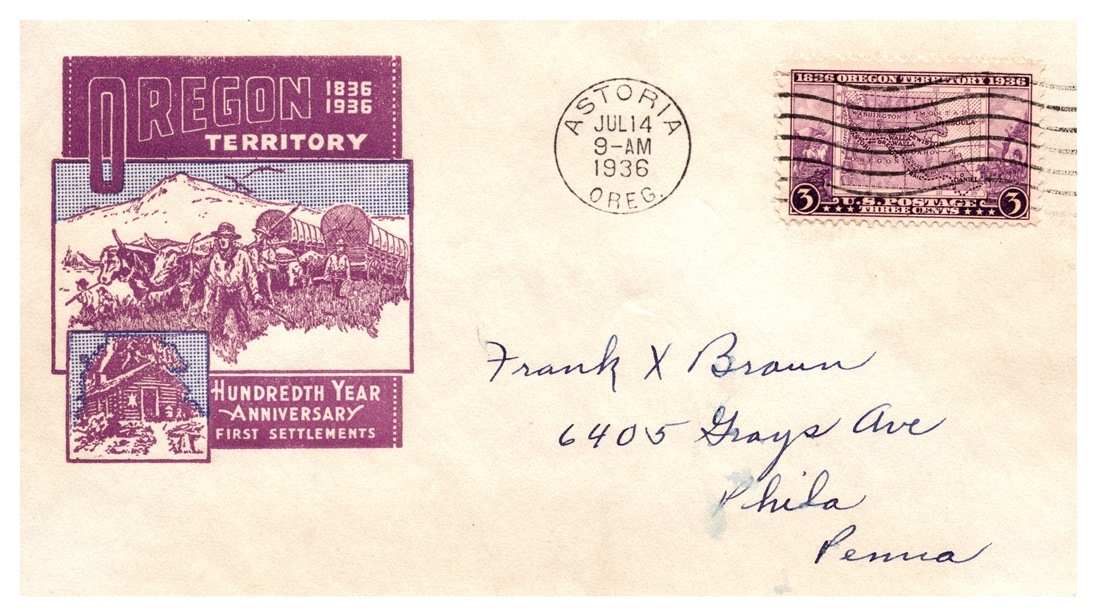 OREGON 1836
1936
TERRITORY
HUNDREDTH YEAR
ANNIVERSARY
FIRST SETTLEMENTS
ASTORIA
JUL 14
9-AM
1936
OREG.
1836 OREGON TERRITORY 1936
WASHINGTON MONTANA
OREGON
3 U.S. POSTAGE 3
THREE CENTS
Frank X Brown
6405 Grays Ave
Phila
Penna